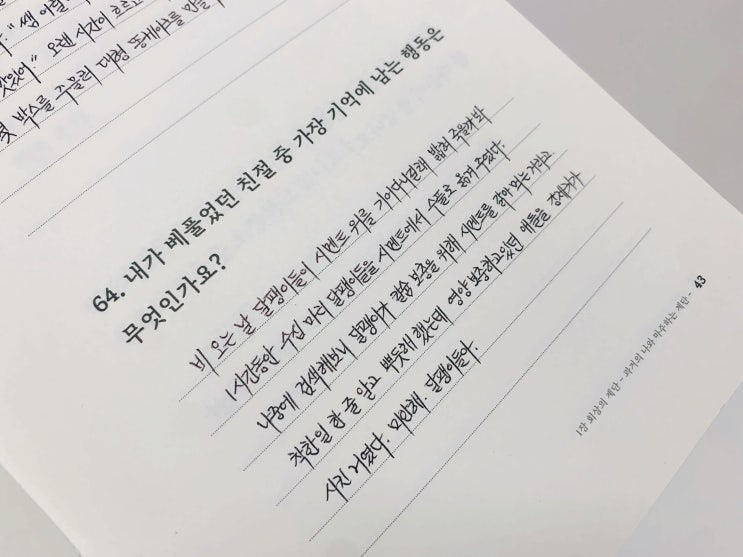 ." "쌤 어릴
맛있어." 오랜 시간이 흐르고
박스를 주물러 대형 똥케이크를 만들
64. 내가 베풀었던 친절 중 가장 기억에 남는 행동은
무엇인가요?
비 오는 날 달팽이들이 시멘트 위를 기어다니길래 밟혀 죽을까봐
1시간동안 수십 마리 달팽이들을 시멘트에서 수풀로 옮겨 주었다.
나중에 검색해보니 달팽이가 칼슘 보충을 위해 시멘트를 핥아 먹는 거라고
착한 일 한 줄 알고 뿌듯해 했는데 영양 보충하고 있던 애들을 강제귀가
시킨 거였다. 미안해. 달팽이들아.
1장 회상의 제단 - 과거의 나와 마주하는 제단 - 43